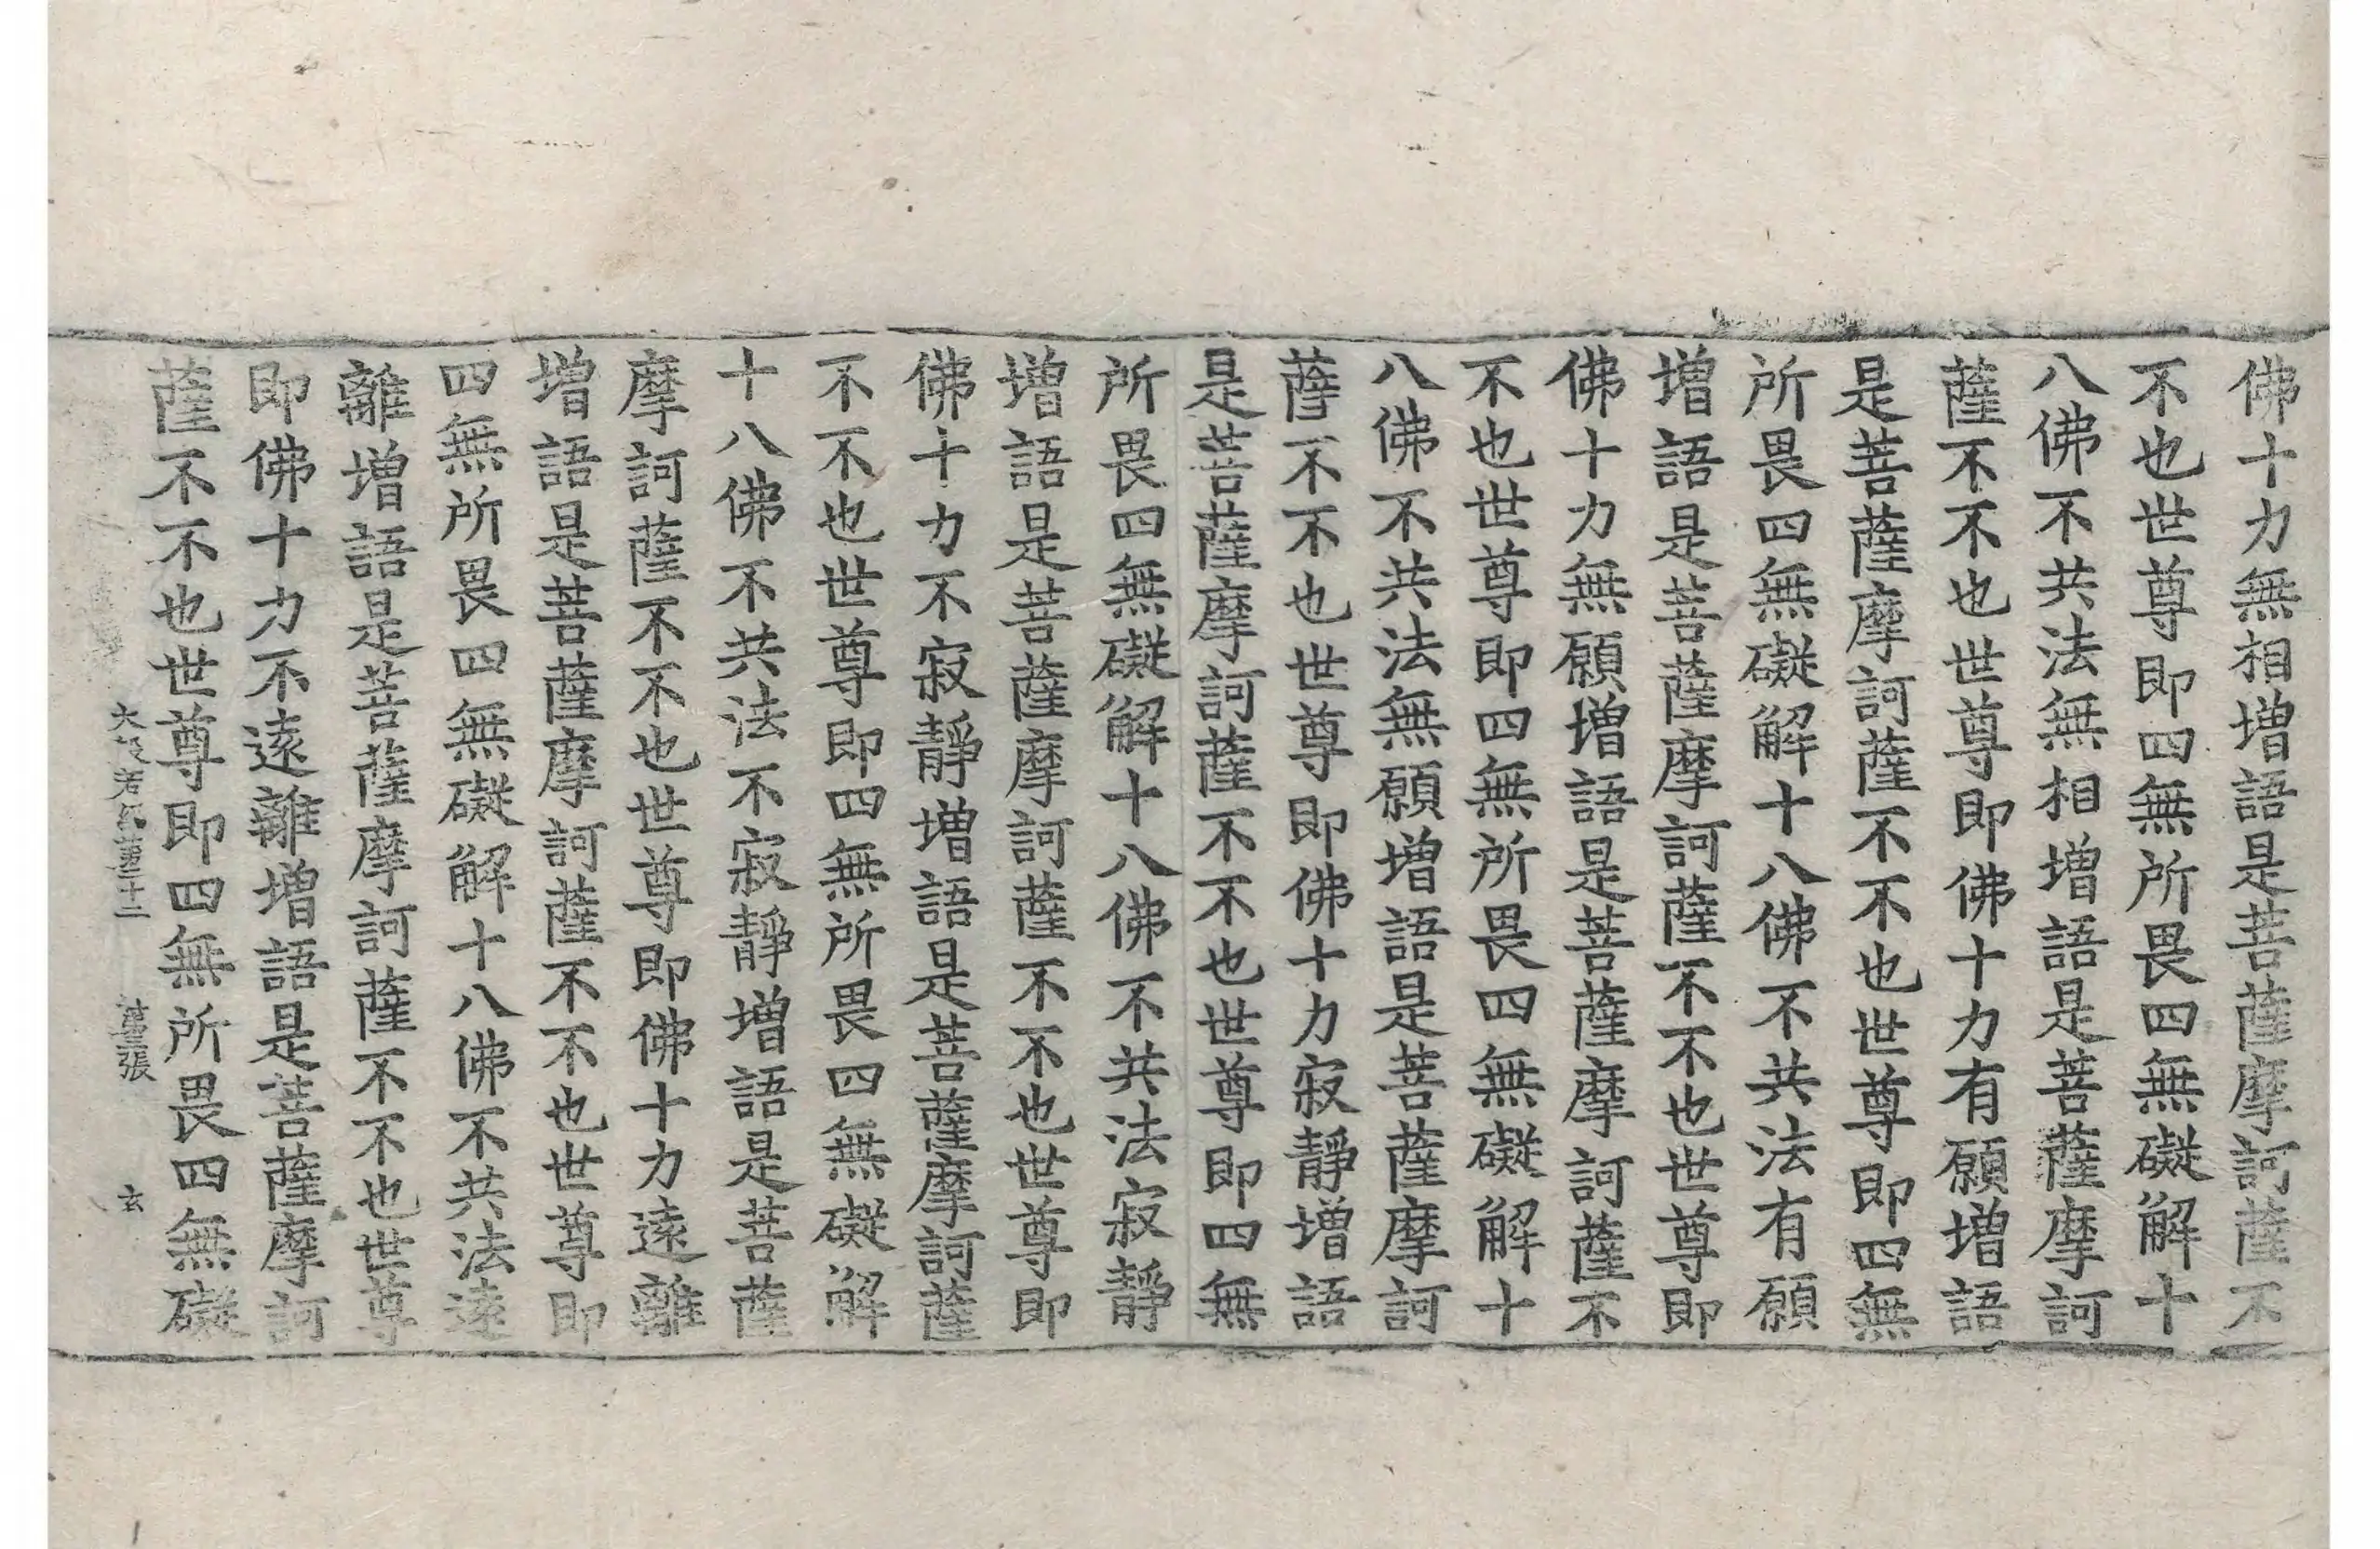 佛十力無相增語是菩薩摩訶薩不
不也世尊即四無所畏四無礙解十
八佛不共法無相增語是菩薩摩訶
薩不不也世尊即佛十力有願增語
是菩薩摩訶薩不不也世尊即四無
所畏四無礙解十八佛不共法有願
增語是菩薩摩訶薩不不也世尊即
佛十力無願增語是菩薩摩訶薩不
不也世尊即四無所畏四無礙解十
八佛不共法無願增語是菩薩摩訶
薩不不也世尊即佛十力寂靜增語
是菩薩摩訶薩不不也世尊即四無
所畏四無礙解十八佛不共法寂靜
增語是菩薩摩訶薩不不也世尊即
佛十力不寂靜增語是菩薩摩訶薩
不不也世尊即四無所畏四無礙解
十八佛不共法不寂靜增語是菩薩
摩訶薩不不也世尊即佛十力遠離
增語是菩薩摩訶薩不不也世尊即
四無所畏四無礙解十八佛不共法遠
離增語是菩薩摩訶薩不不也世尊
即佛十力不遠離增語是菩薩摩訶
薩不不也世尊即四無所畏四無礙
大般若 十二 張 玄